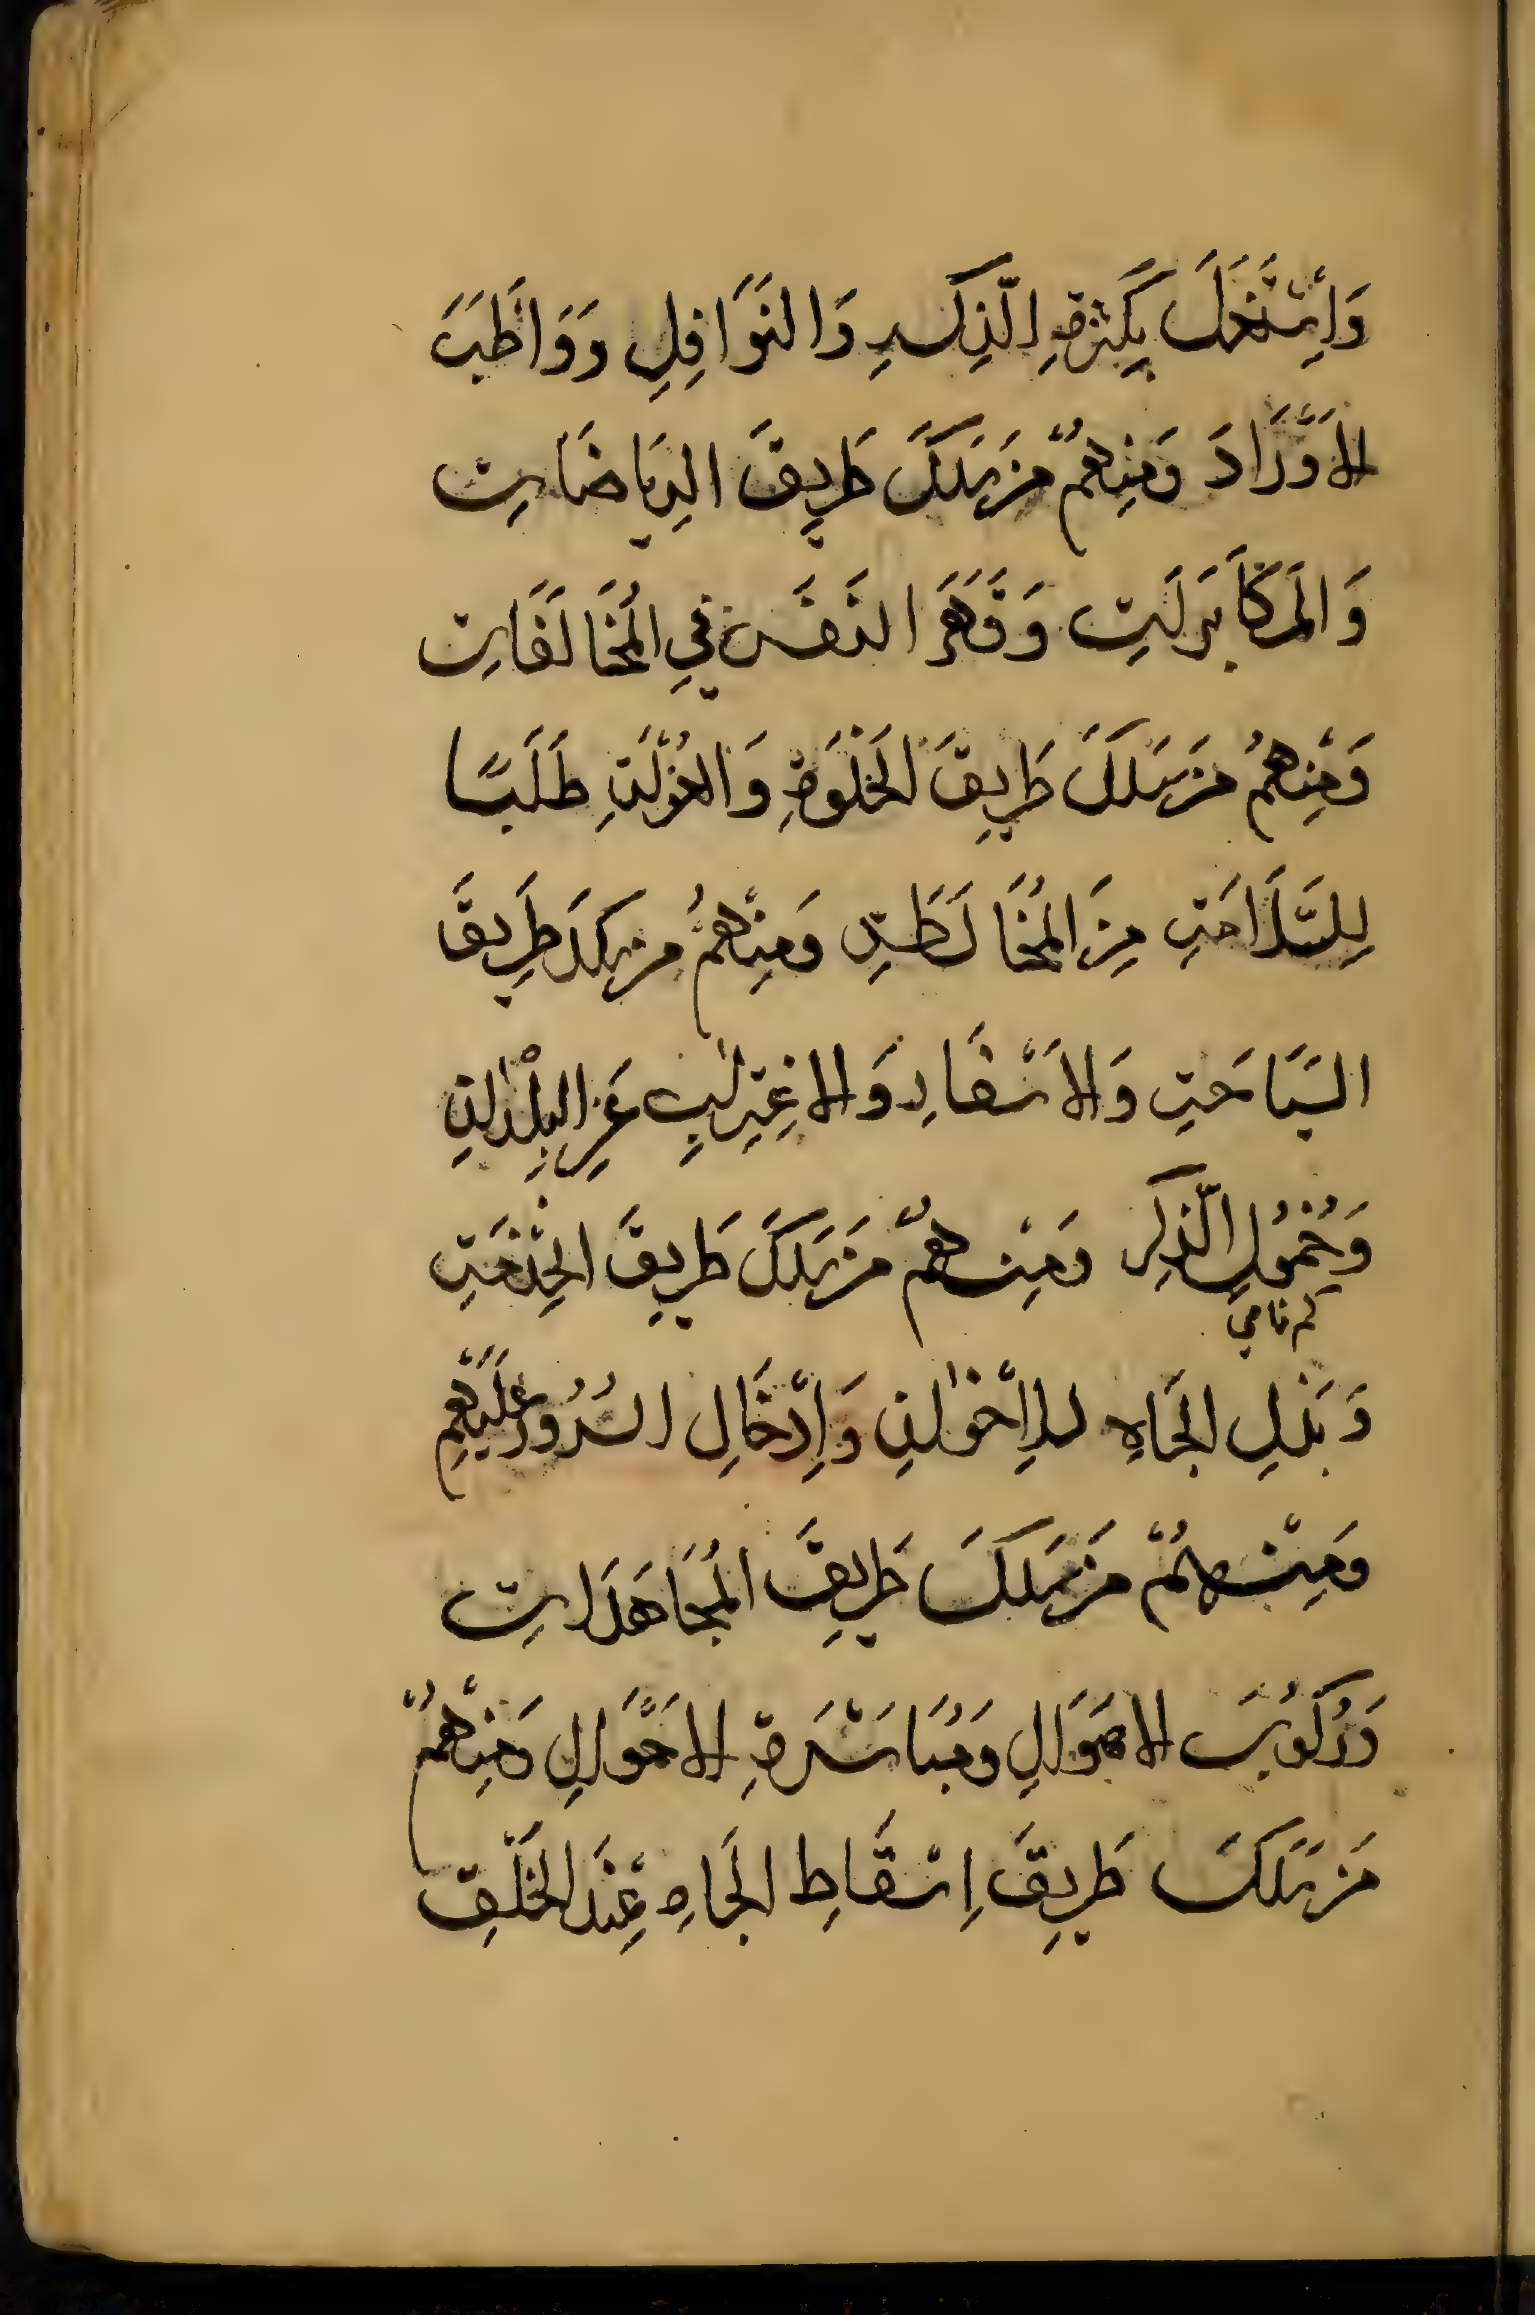 وَاشْتَغَلَ بِكَثْرَةِ الذِّكْرِ وَالنَّوَافِلِ وَوَاظَبَ
الْأَوْرَادَ وَمِنْهُمْ مَنْ سَلَكَ طَرِيقَ الرِّيَاضَاتِ
وَالْمُكَابَدَاتِ وَقَهَرَ النَّفْسَ فِي الْمُخَالَفَاتِ
وَمِنْهُمْ مَنْ سَلَكَ طَرِيقَ الْخَلْوَةِ وَالْعُزْلَةِ طَلَبًا
لِلسَّلَامَةِ مِنَ الْمُخَالَطَةِ وَمِنْهُمْ مَنْ سَلَكَ طَرِيقَ
السِّيَاحَةِ وَالْأَسْفَارِ وَالْاغْتِرَابِ عَنِ الْبُلْدَانِ
وَخُمُولِ الذِّكْرِ وَمِنْهُمْ مَنْ سَلَكَ طَرِيقَ الْخِدْمَةِ
كم نامي
وَبَذْلِ الْجَاهِ لِلْإِخْوَانِ وَإِدْخَالِ السُّرُورِ عَلَيْهِمْ
وَمِنْهُمْ مَنْ سَلَكَ طَرِيقَ الْمُجَاهَدَاتِ
وَرُكُوبَ الْأَهْوَالِ وَمُبَاشَرَةِ الْأَحْوَالِ وَمِنْهُمْ
مَنْ سَلَكَ طَرِيقَ إِسْقَاطِ الْجَاهِ عِنْدَ الْخَلْقِ